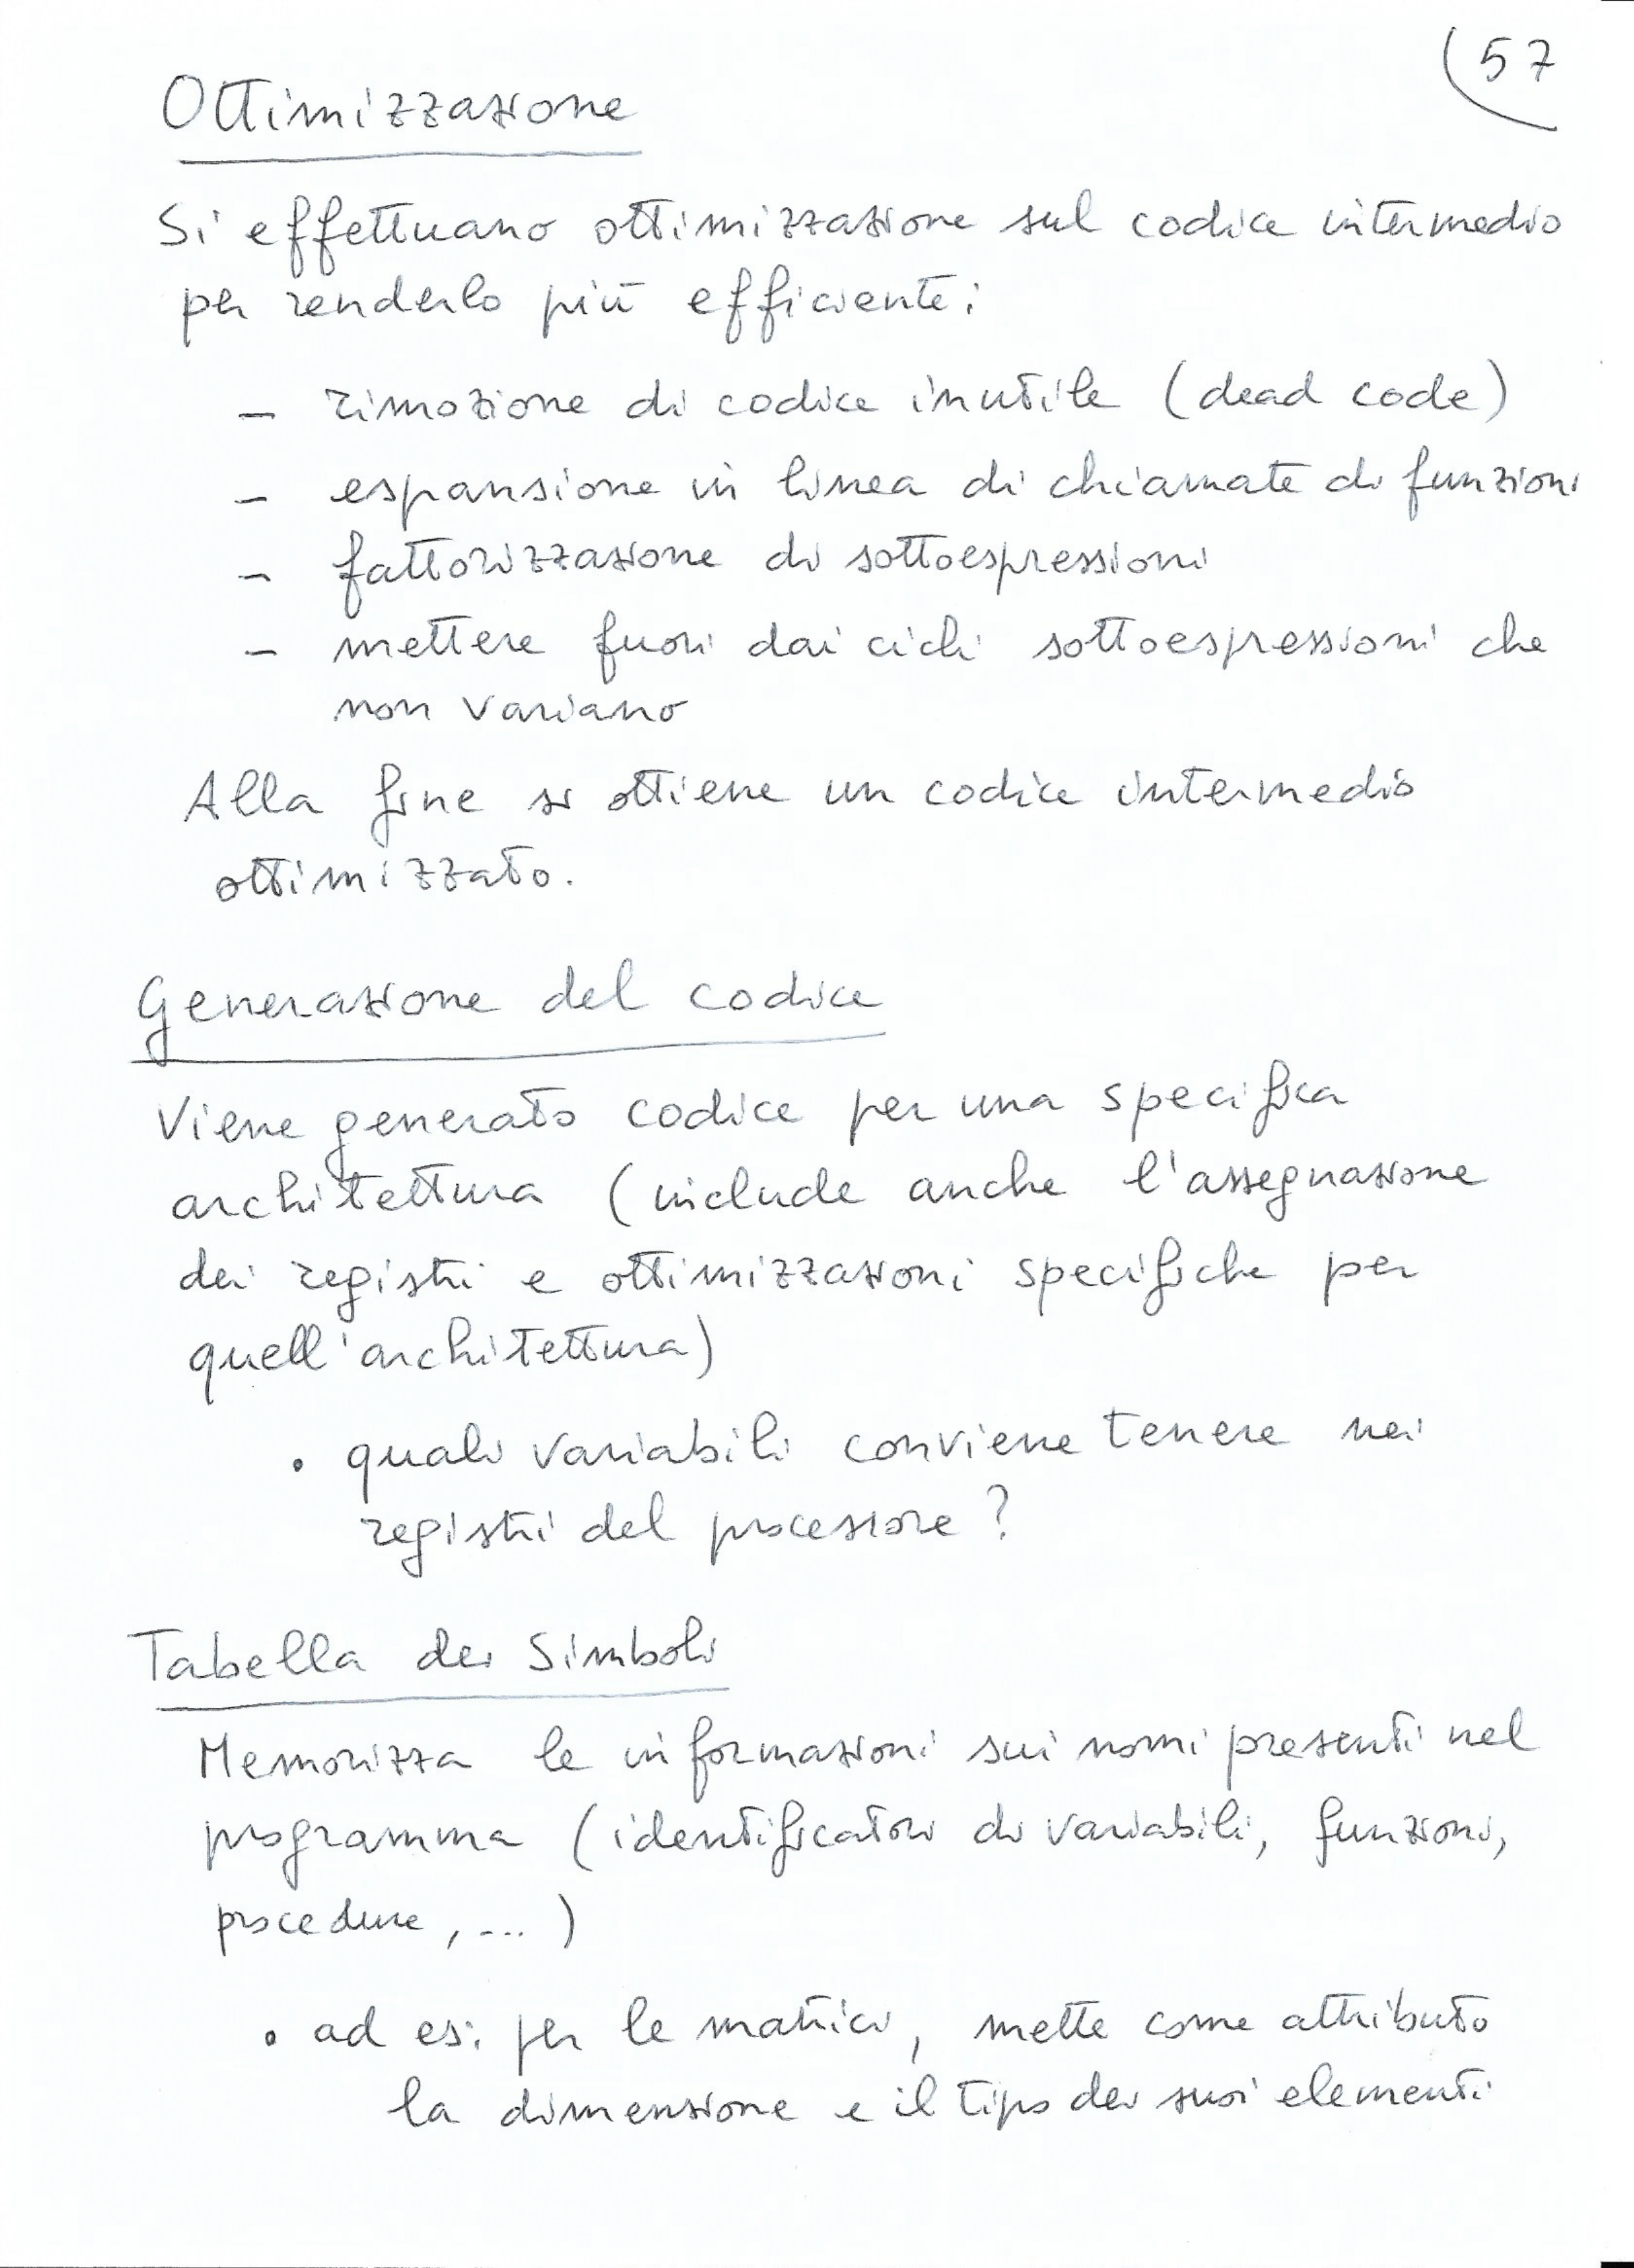 57
Ottimizzazione
Si effettuano ottimizzazione sul codice intermedio
per renderlo più efficiente:
- rimozione di codice inutile (dead code)
- espansione in linea di chiamate di funzioni
- fattorizzazione di sottoespressioni
- mettere fuori dai cicli sottoespressioni che
non variano
Alla fine si ottiene un codice intermedio
ottimizzato.
Generazione del codice
Viene generato codice per una specifica
architettura (include anche l'assegnazione
dei registri e ottimizzazioni specifiche per
quell'architettura)
• quali variabili conviene tenere nei
registri del processore?
Tabella dei Simboli
Memorizza le informazioni sui nomi presenti nel
programma (identificatori di variabili, funzioni,
procedure, ...)
• ad es: per le matrici, mette come attributo
la dimensione e il tipo dei suoi elementi